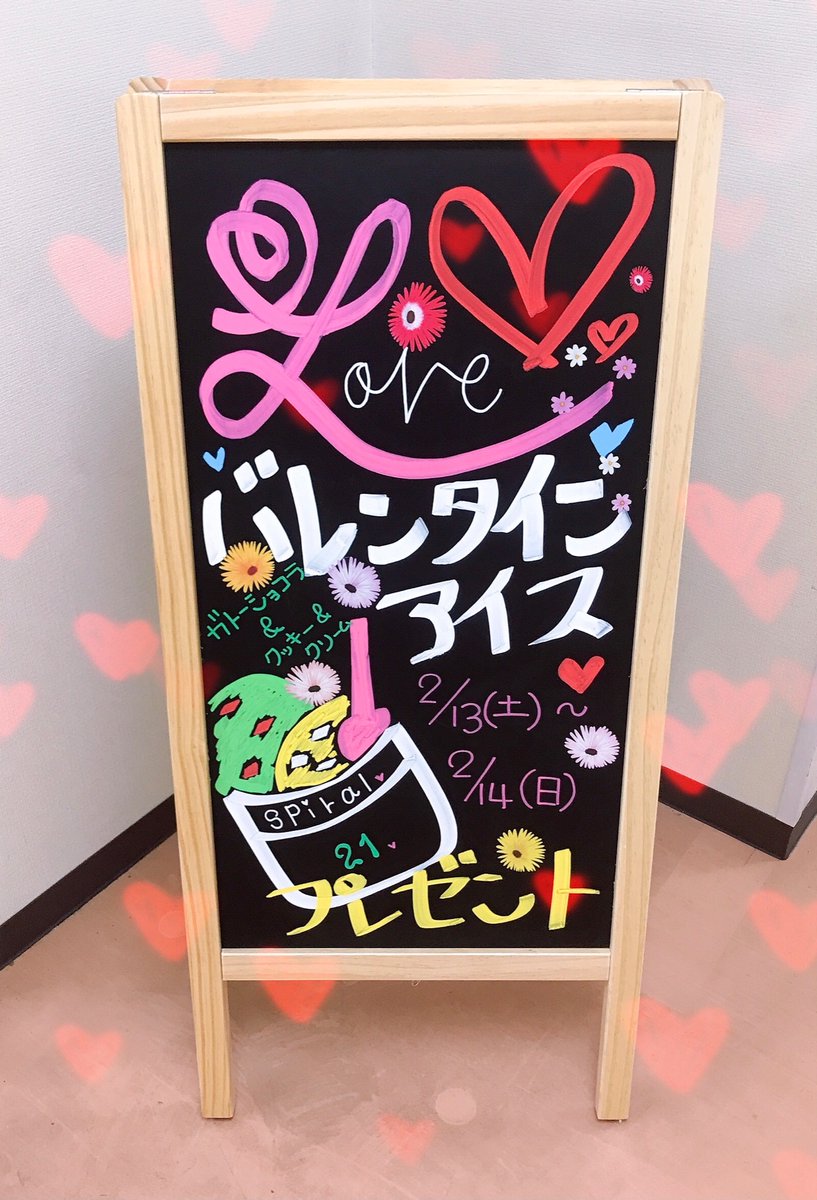 Love
バレンタイン
アイス
ガトーショコラ
&
クッキー&
クリーム
2/13(土)~
2/14(日)
spiral
21
プレゼント